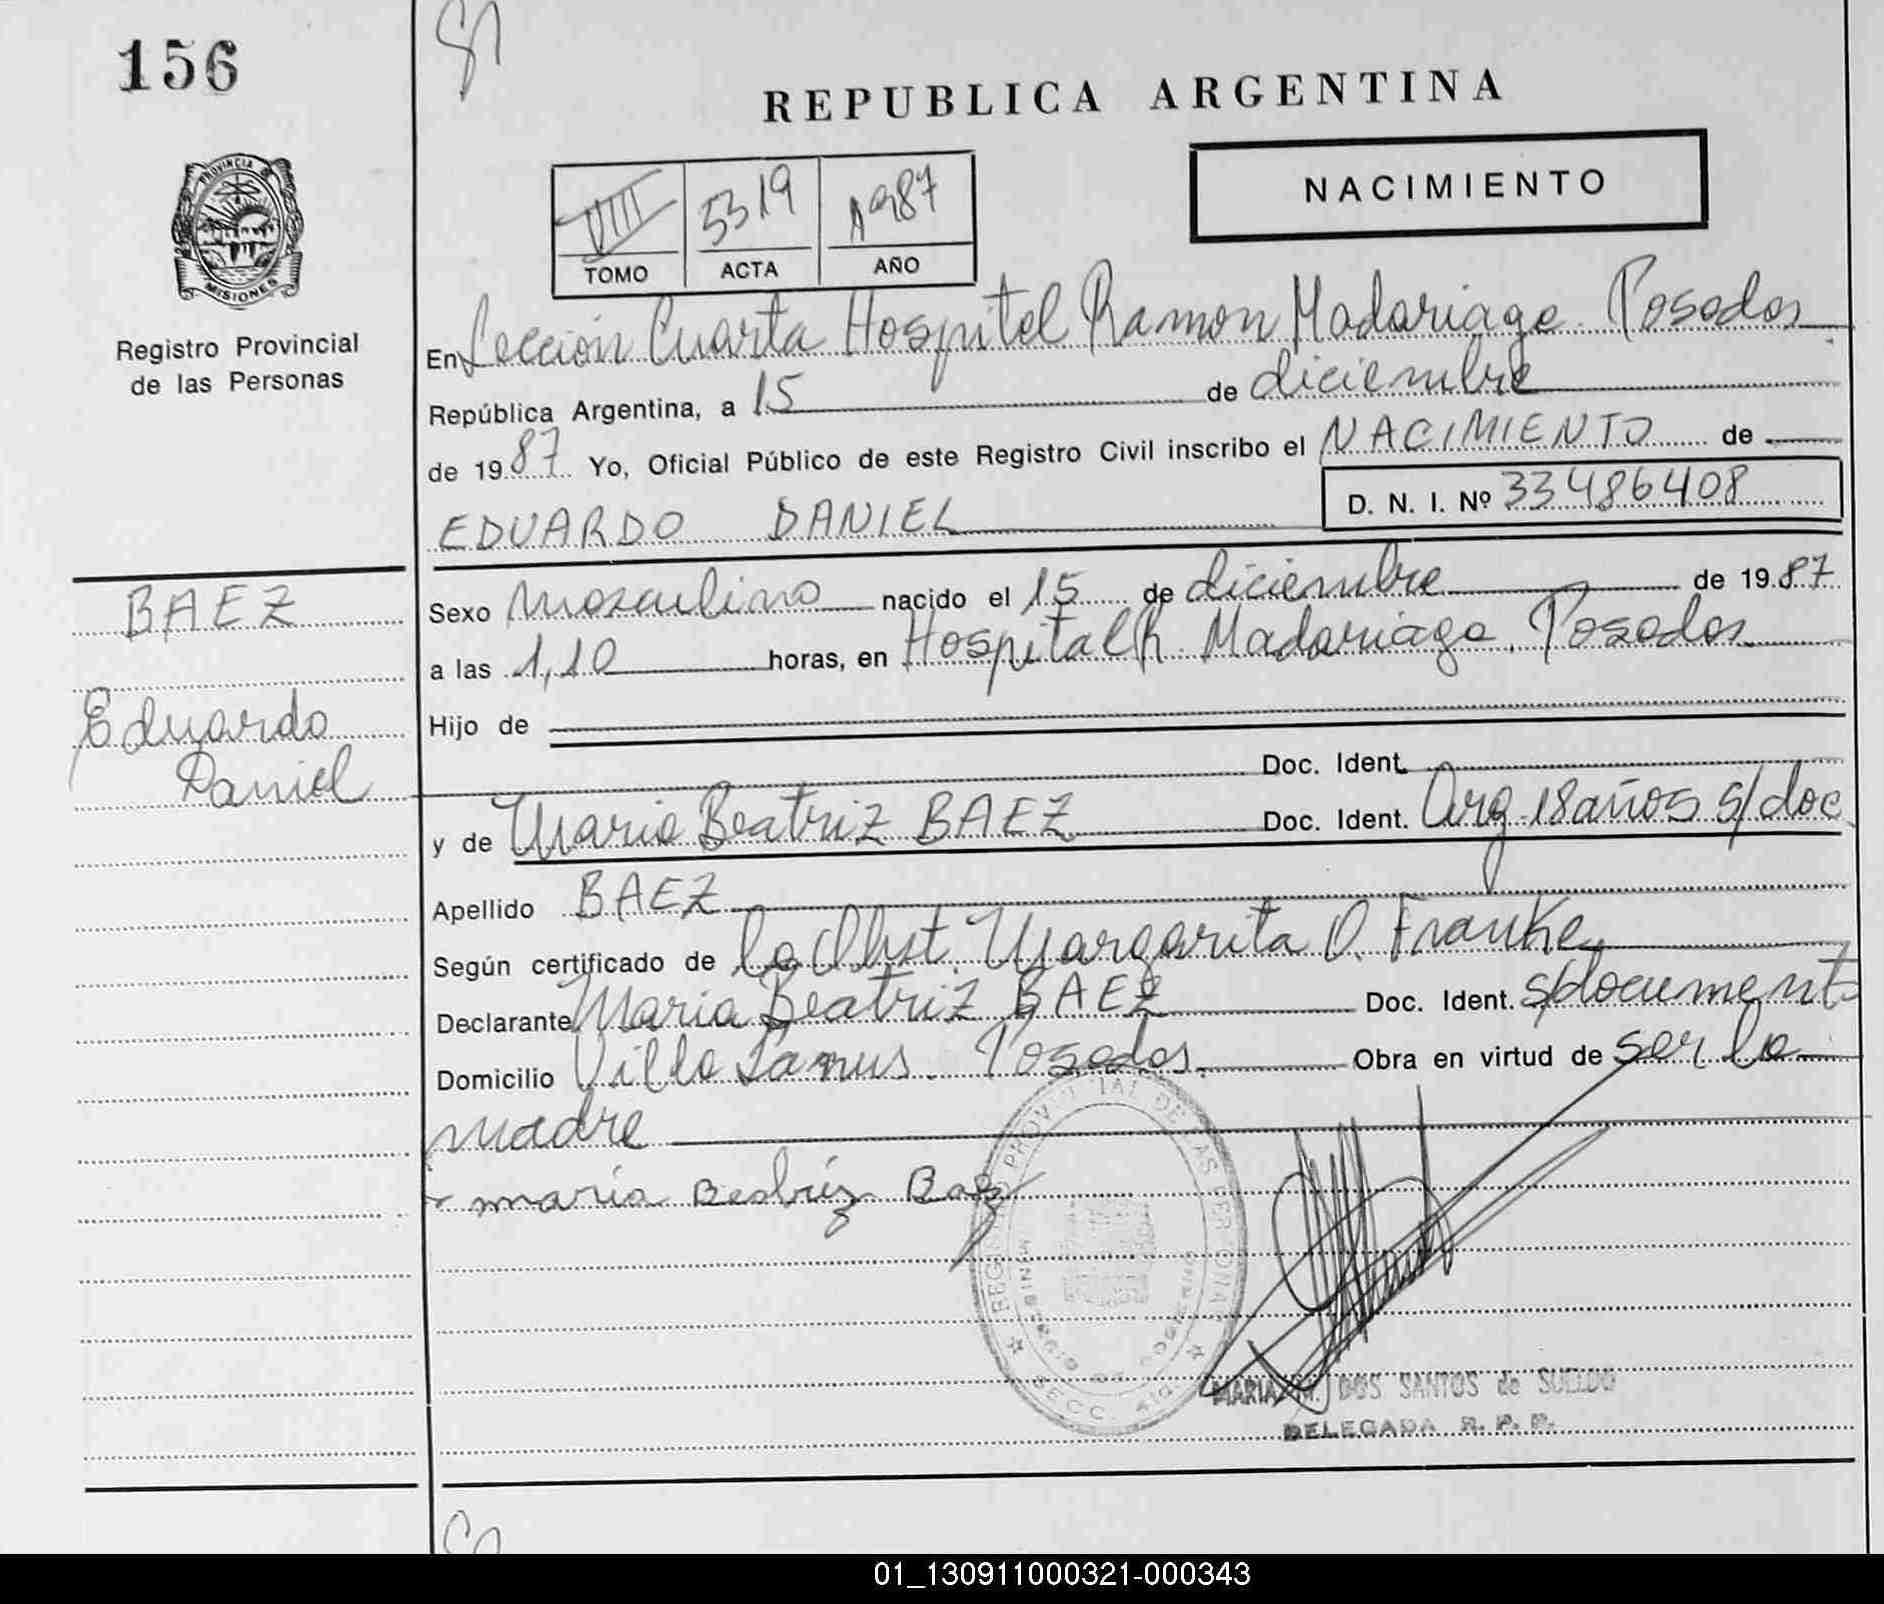 156
REPUBLICA ARGENTINA
NACIMIENTO
VIII 5319 1987
TOMO ACTA AÑO
PROVINCIA
MISIONES
Registro Provincial
de las Personas
En Sección Cuarta Hospital Ramon Madariaga. Posadas
República Argentina, a 15 de diciembre
de 1987 Yo, Oficial Público de este Registro Civil inscribo el NACIMIENTO de
EDUARDO DANIEL D. N. I. Nº 33486408
BAEZ
Eduardo
Daniel
Sexo Masculino nacido el 15 de diciembre de 1987
a las 1,10 horas, en Hospital R. Madariaga. Posadas
Hijo de
Doc. Ident.
y de Maria Beatriz BAEZ Doc. Ident. Arg. 18 años s/doc
Apellido BAEZ
Según certificado de la Obst. Margarita O. Franke
Declarante Maria Beatriz BAEZ Doc. Ident. s/documento
Domicilio Villa Lanus. Posadas. Obra en virtud de ser la
madre
maria Beatriz Baez
REGISTRO PROVINCIAL DE LAS PERSONAS
MINISTERIO DE GOBIERNO
SECC. 4ta
MARIA M. DOS SANTOS de SUELDO
DELEGADA R. P. P.
01_130911000321-000343